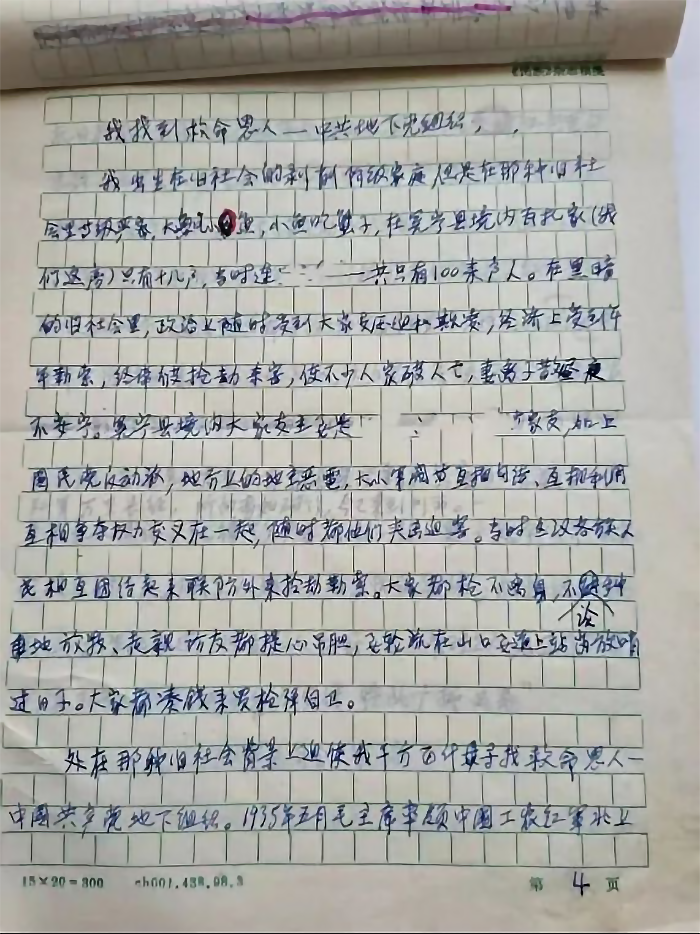 我找到救命恩人一中共地下党组织,
我出生在旧社会的剥削阶级家庭,但是在那种旧社
会里等级严家,大鱼吃小鱼,小鱼吃虾子,在冕宁县境内百扎家(我
们这房)只有十几户,当时连 一共只有100来户人。在黑暗
的旧社会里,政治上随时受到大家支压迫和欺凌,经济上受到年
年勒索,经常被抢劫来害,使不少人家破人亡,妻离子散昼夜
不安宁。冕宁县境内大家支主要是 家支,加上
国民党反动派,地方上的地主恶霸,大小军阀等互相勾结、互相利用
互相争夺权力交叉在一起,随时都他们夹击迫害。当时彝汉各族人
民相互团结起来联防外来抢劫勒索。大家都枪不离身,不论种
地放牧、走亲访友都提心吊胆,要轮流在山口要道上站岗放哨
过日子。大家都凑钱来买枪弹自卫。
处在那种旧社会背景上迫使我千方百计要寻找救命恩人一
中国共产党地下组织。1935年五月毛主席率领中国工农红军北上
15×20=300 ch001.438.98.3
第 4 页